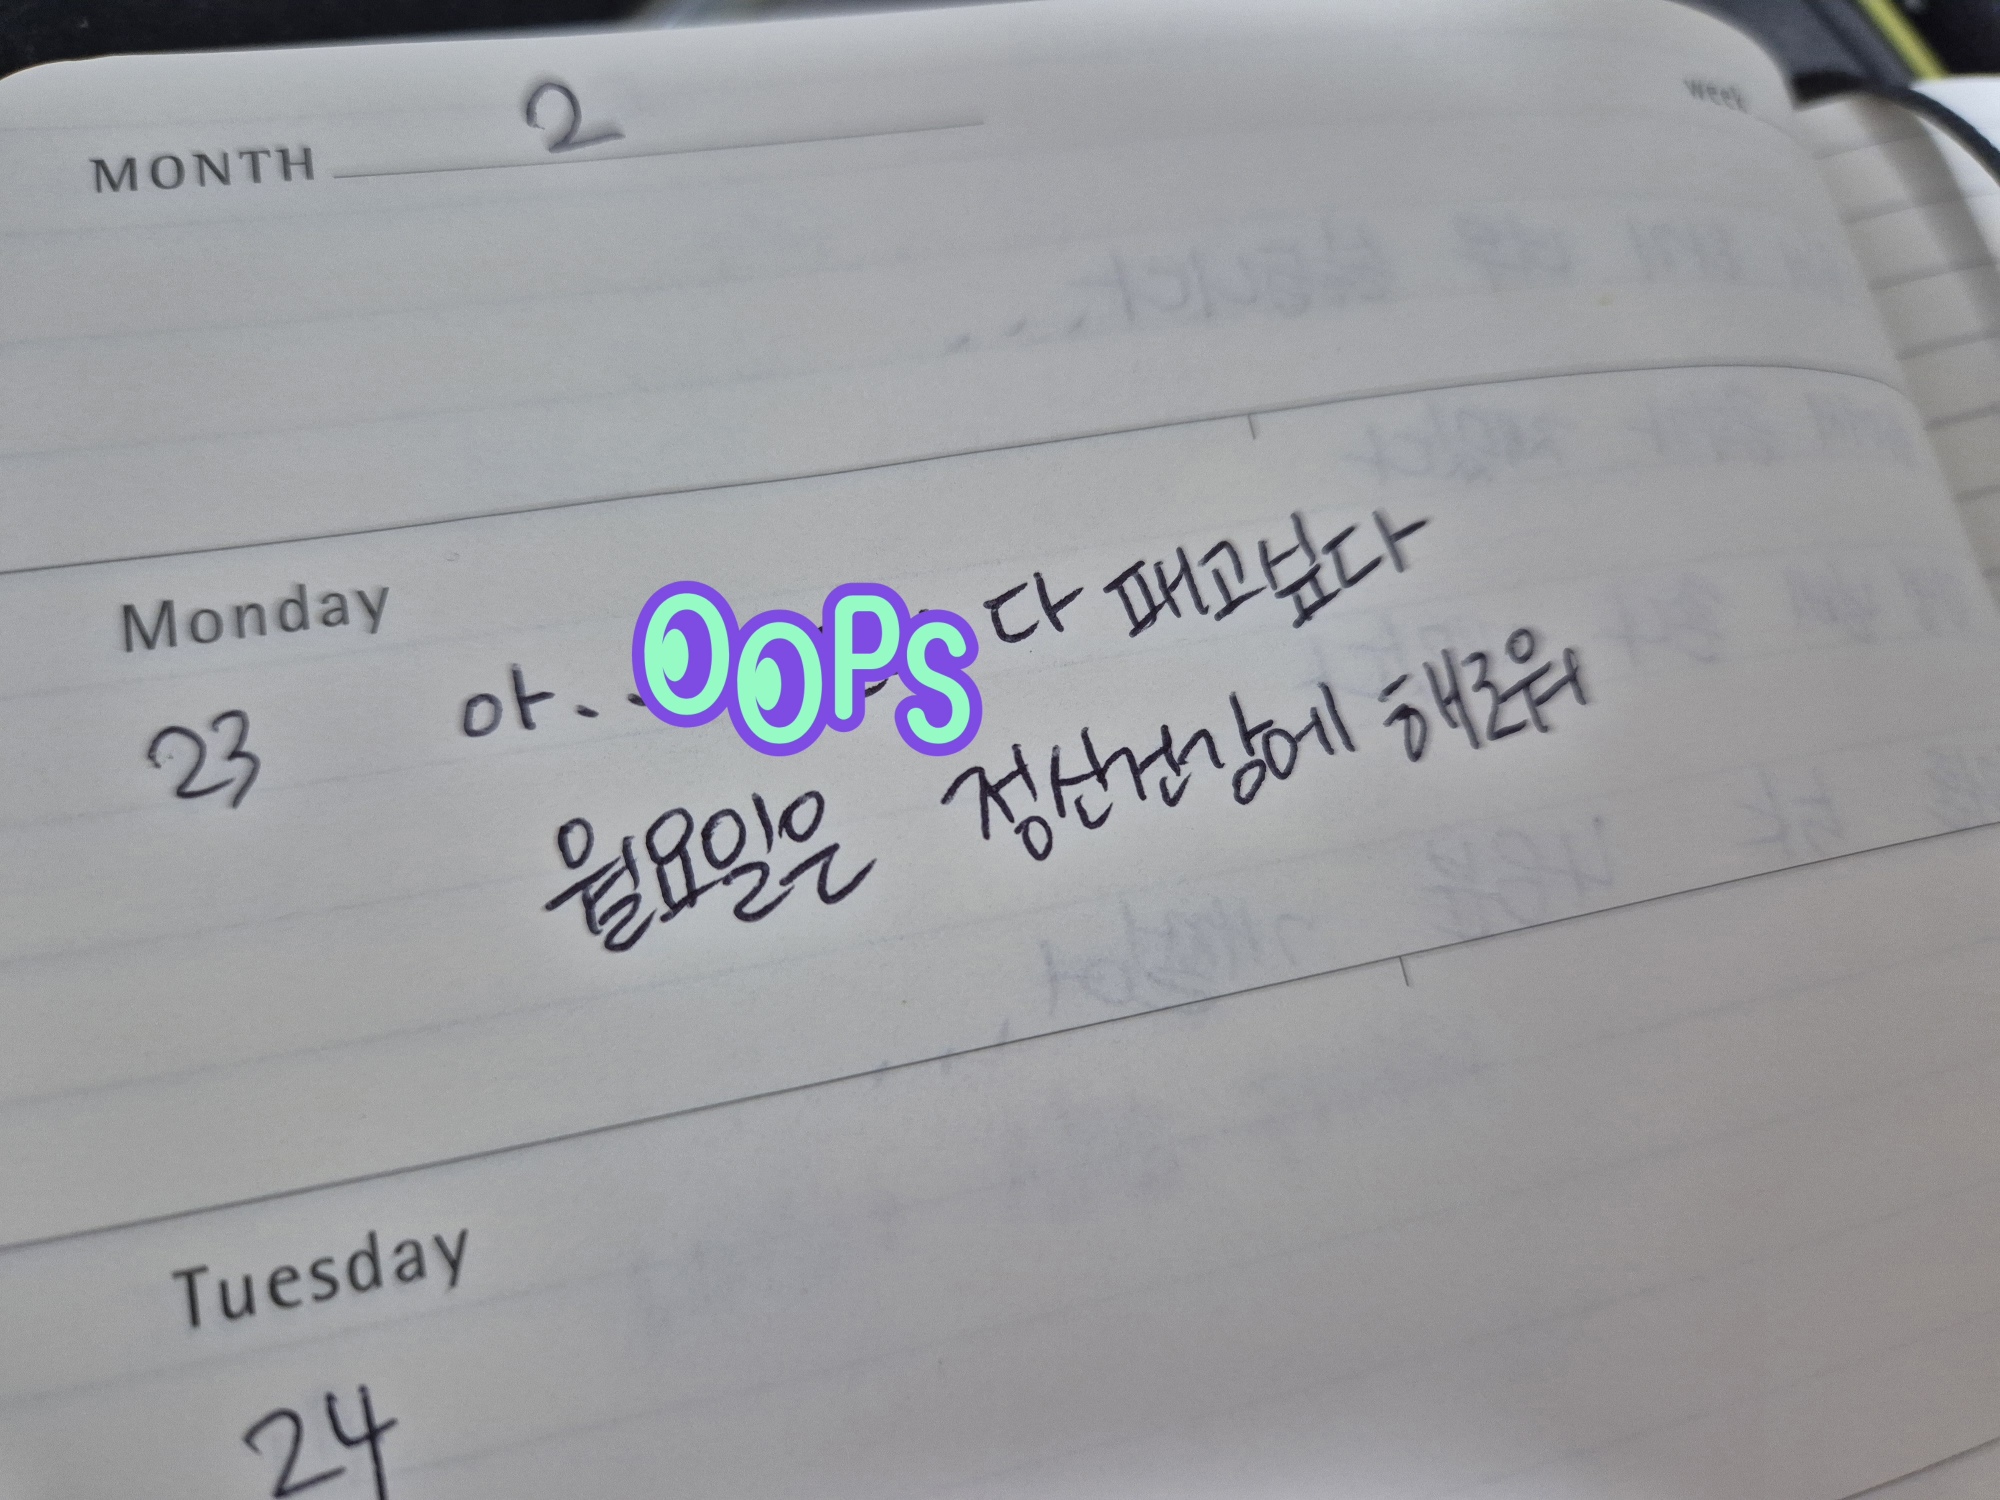 MONTH 2
week
Monday
23 아.. OOPS 다 패고싶다
월요일은 정신건강에 해로워
Tuesday
24